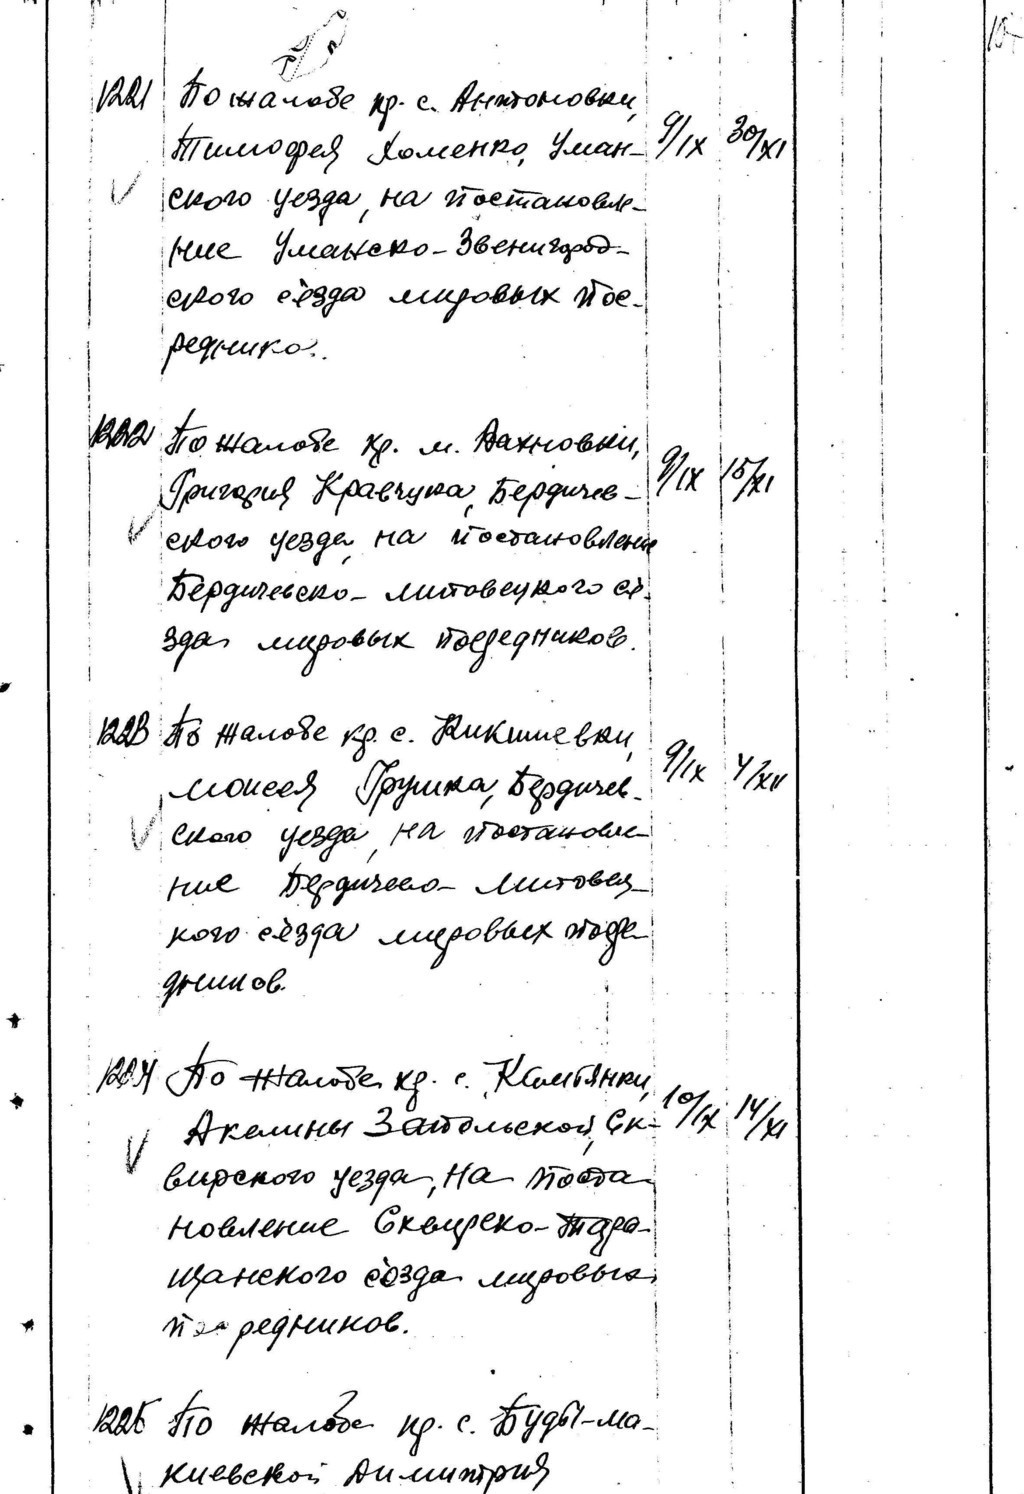 1221 По жалобе кр. с. Антоновки,
Тимофея Хоменко, Уман- 9/IX 30/XI
ского уезда, на постановле-
ние Уманско-Звенигород-
ского съезда мировых пос-
реднико..
1222 По жалобе кр. м. Вахновки,
Григория Кравчука, Бердичев- 9/IX 15/XI
ского уезда, на постановление
Бердичевско-литовецкого съ-
зда мировых посредников.
1223 По жалобе кр. с. Кикишевки,
Моисея Грушка, Бердичев- 9/IX 4/XII
ского уезда, на постановле-
ние Бердичево-литовец-
кого съезда мировых посре-
дников.
1224 По жалобе кр. с.
Акелины Запольской, Ск- 10/IX 14/XI
вирского уезда, на поста-
новление Сквирско-Тара-
щанского съезда мировых
посредников.
1225 По жалобе кр. с. Буды-ма-
киевской Димитрия